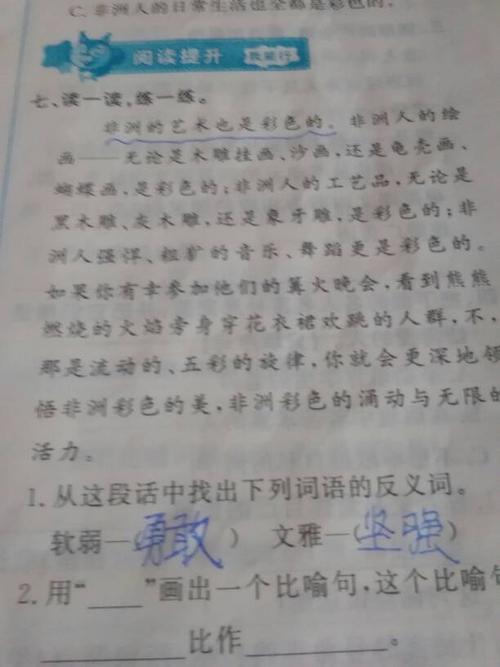 C. 非洲人的日常生活也全都是彩色的。
阅读提升
七、读一读,练一练。
非洲的艺术也是彩色的。非洲人的绘
画——无论是木雕挂画、沙画,还是龟壳画、
蝴蝶画,是彩色的;非洲人的工艺品,无论是
黑木雕、灰木雕,还是象牙雕,是彩色的;非
洲人强悍、粗犷的音乐、舞蹈更是彩色的。
如果你有幸参加他们的篝火晚会,看到熊熊
燃烧的火焰旁身穿花衣裙欢跳的人群,不,
那是流动的、五彩的旋律,你就会更深地领
悟非洲彩色的美,非洲彩色的涌动与无限的
活力。
1. 从这段话中找出下列词语的反义词。
软弱—(勇敢) 文雅—(坚强)
2. 用“____”画出一个比喻句,这个比喻句
________比作________。